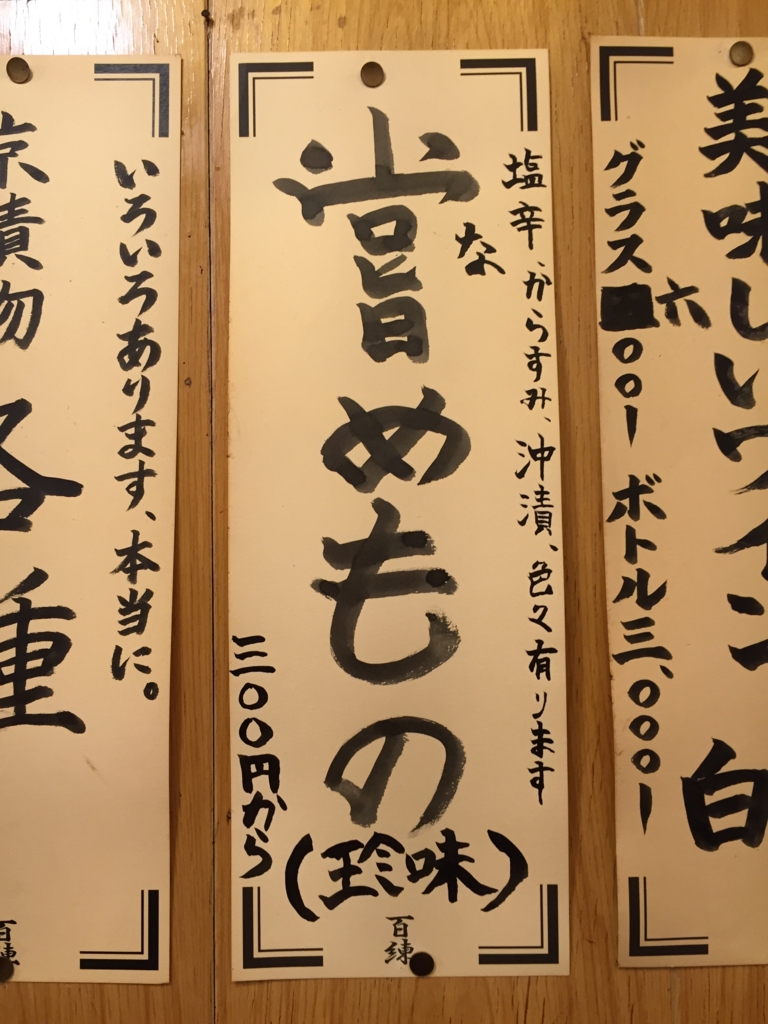 美味しいワイン 白
グラス六〇〇ー ボトル三、〇〇〇ー
塩辛、からすみ、沖漬、色々有ります
な
嘗めもの
(珍味)
三〇〇円から
百練
いろいろあります、本当に。
京漬物 各種
百練